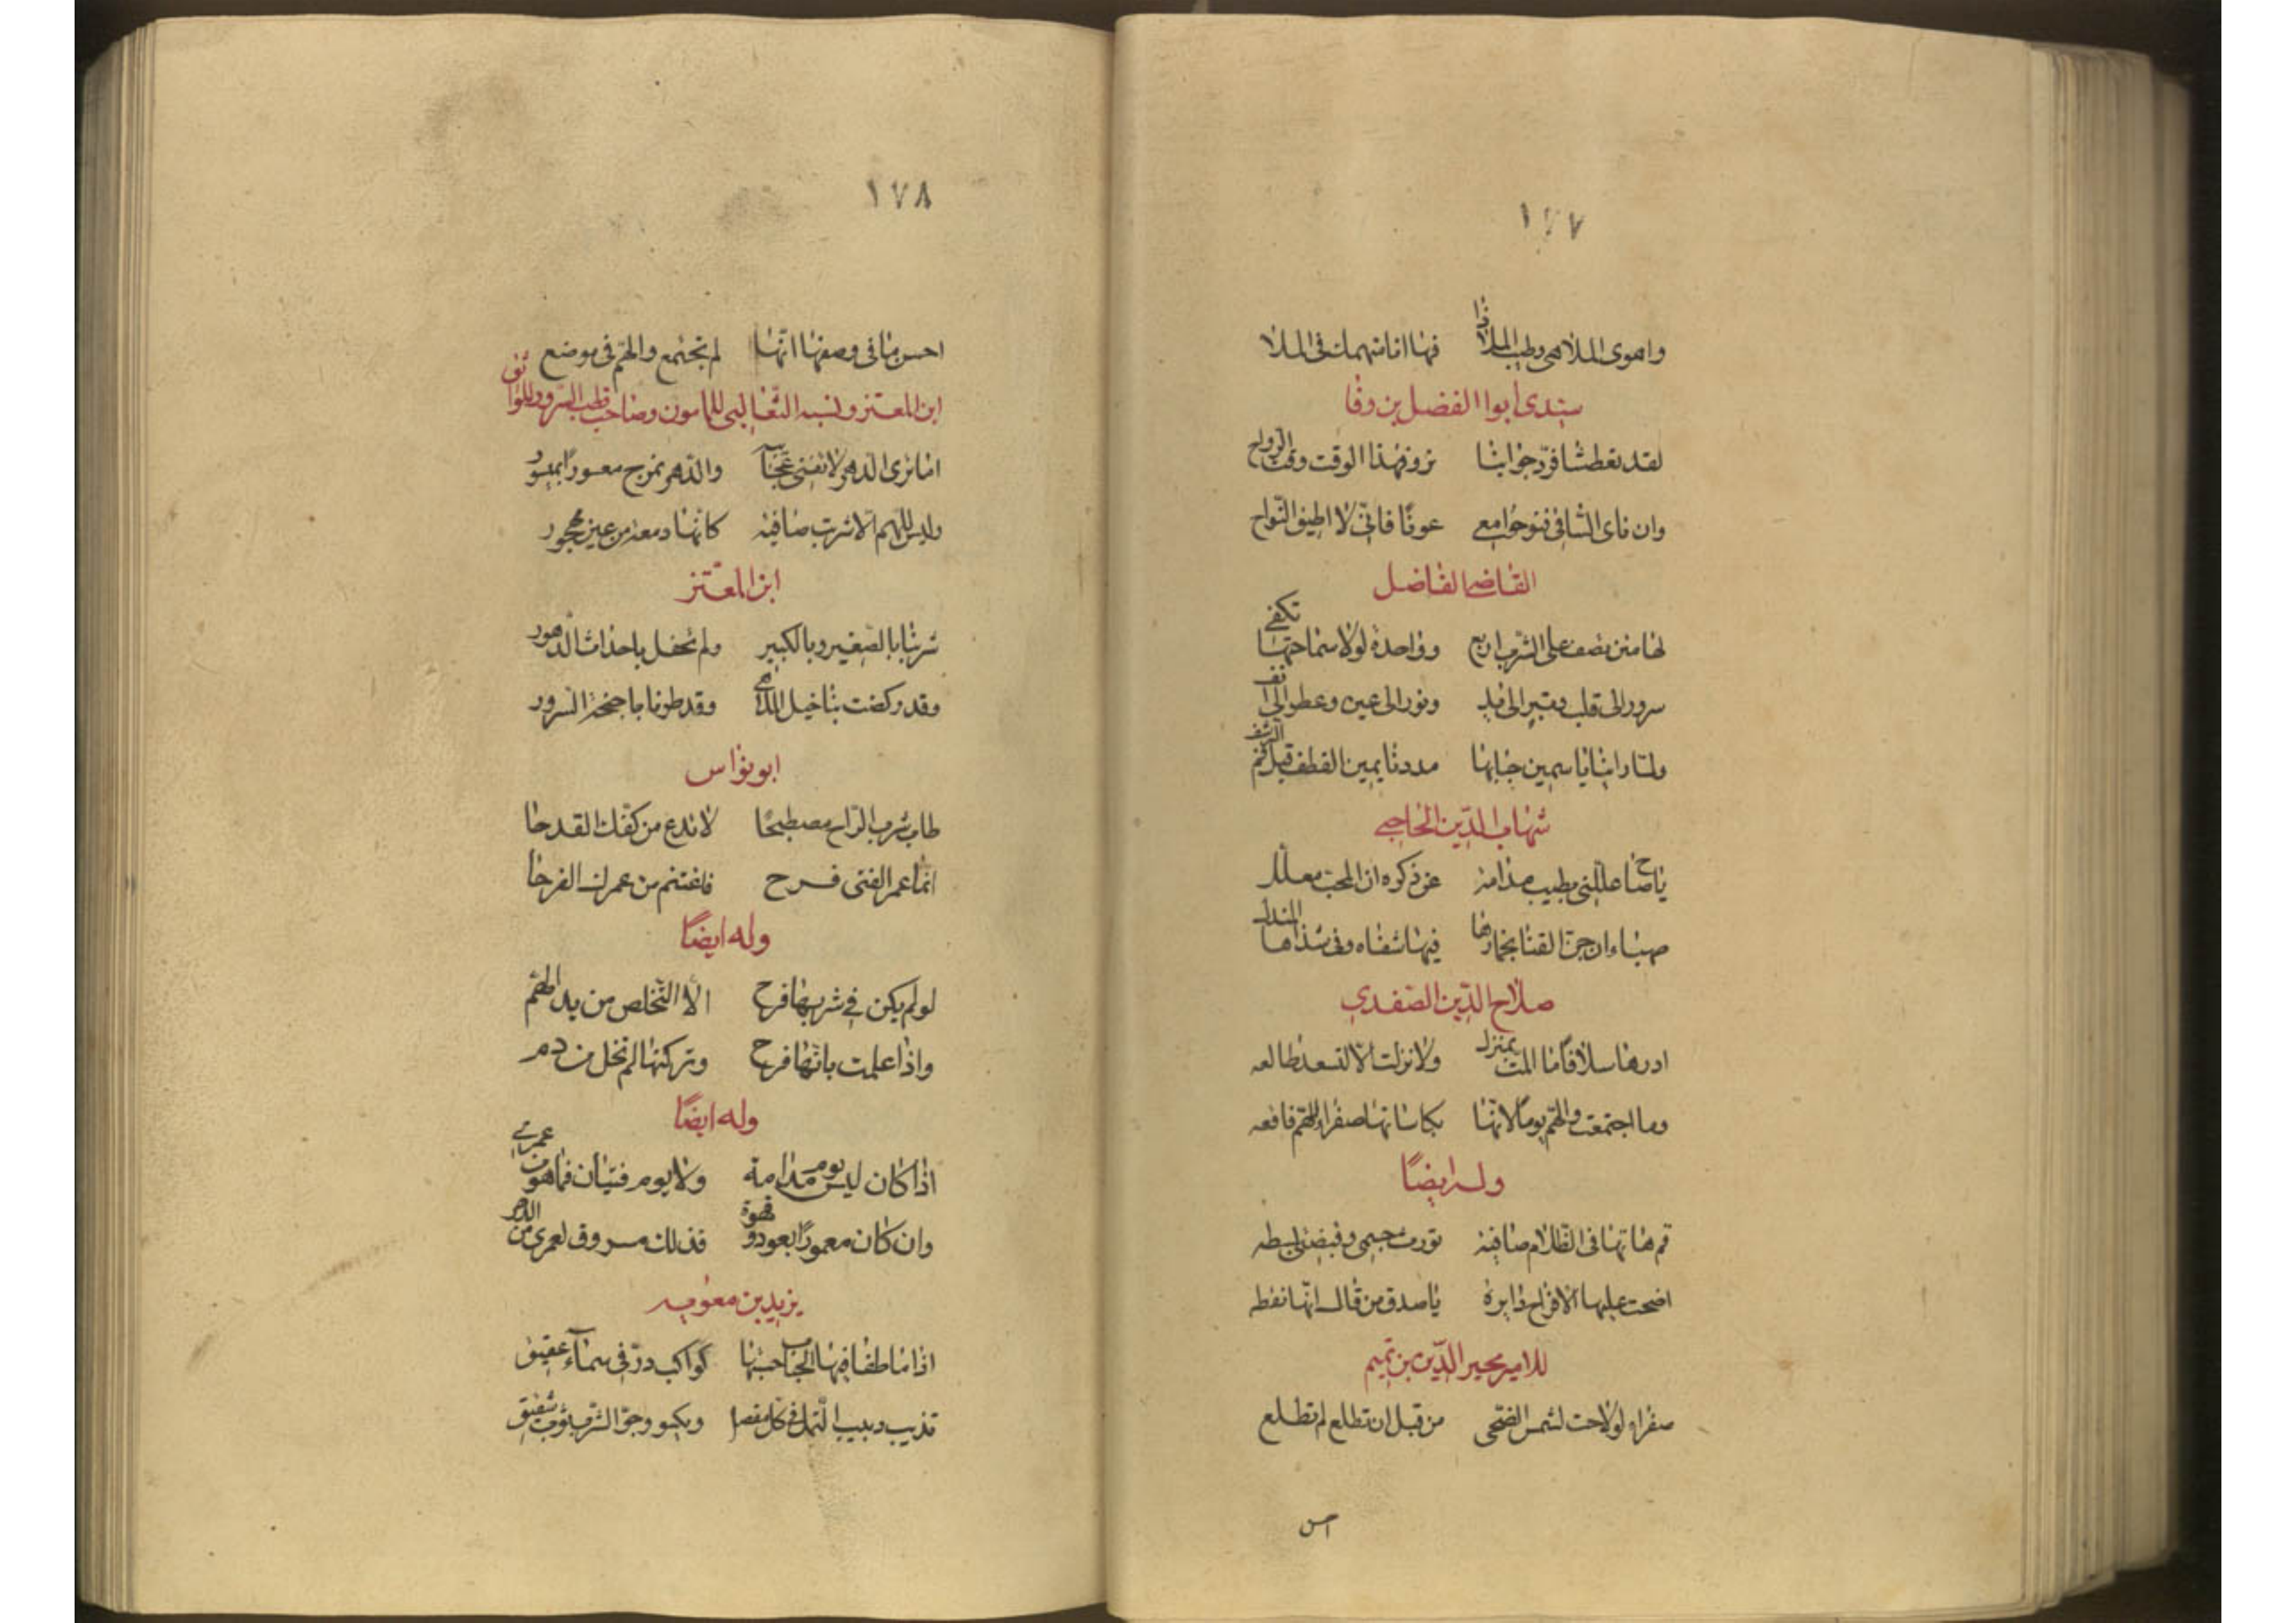 ١٧٧
واهوى الملاهي وطيب الملاذا فها انا منهمك في الملا
سيدي ابوا الفضل بن وفا
لقد تعطشنا فرد جوابنا نروفهذا الوقت وقت الرواح
وان ناى الشافي فنوحوا معي عونا فاني لا اطيق النواح
القاضي الفاضل
لها منن تصف على الشرب اربع وواحدة لولا سماحتها تكفي
سرور الى قلب وتبر الى يد ونور الى عين وعطر الى انف
ولما راينا ياسمين حبابها مددنا يمين القطف قبل فم الرشف
شهاب الدين الحاجبي
يا صاح عللني بطيب مدامة عن ذكره ان المحب معلل
صهباء ان جن الفتا بخمارها فيها شفاه وفي شذاها المندل
صلاح الدين الصفدي
ادرها سلافا ما المت بمنزل ولا نزلت الا لتسعد طالعه
وما اجتمعت والهم يوما لانها بكاساتها صفراء للهم فاقعه
وله ايضا
قم هاتها في الظلام صافية نورت جسمي وقبضتي بسطه
اضحت عليها الافراح دايرة يا صدق من قال انها نقطه
للامير مجير الدين بن تميم
صفراء لو لاحت لشمس الضحى من قبل ان تطلع لم تطلع
احسن
١٧٨
احسن ما في وصفها انها لم تجتمع والهم في موضع
ابن المعتز ونسبه الثعالبي للمامون وصاحب قطب السرور للواثق
اما ترى الدهر لا تفنى عجائبه والدهر يمزج معسورا بميسور
وليس للهم الا شرب صافية كانها دمعة من عين مهجور
ابن المعتز
شربنا بالصغير وبالكبير ولم نحفل باحداث الدهور
وقد ركضت بنا خيل الملاهي وقد طرنا باجنحة السرور
ابو نواس
طاب شرب الراح مصطبحا لا تدع من كفك القدحا
انما عمر الفتى فرح فاغتنم من عمرك الفرحا
وله ايضا
لو لم يكن في شربها فرح الا التخلص من يد الهم
واذا علمت بانها فرح وتركتها لم تخل من دم
وله ايضا
اذا كان يوم ليس مدامة ولا يوم فتيان فما هو من عمري
وان كان معمورا بعود وقهوة فذلك مسروق لعمري من الدهر
يزيد بن معويه
اذا ما طفا فيها الحباب حسبتها كواكب در في سماء عقيق
تدب دبيب النمل في كل مفصل ويكسو وجوه الشرب ثوب شقيق